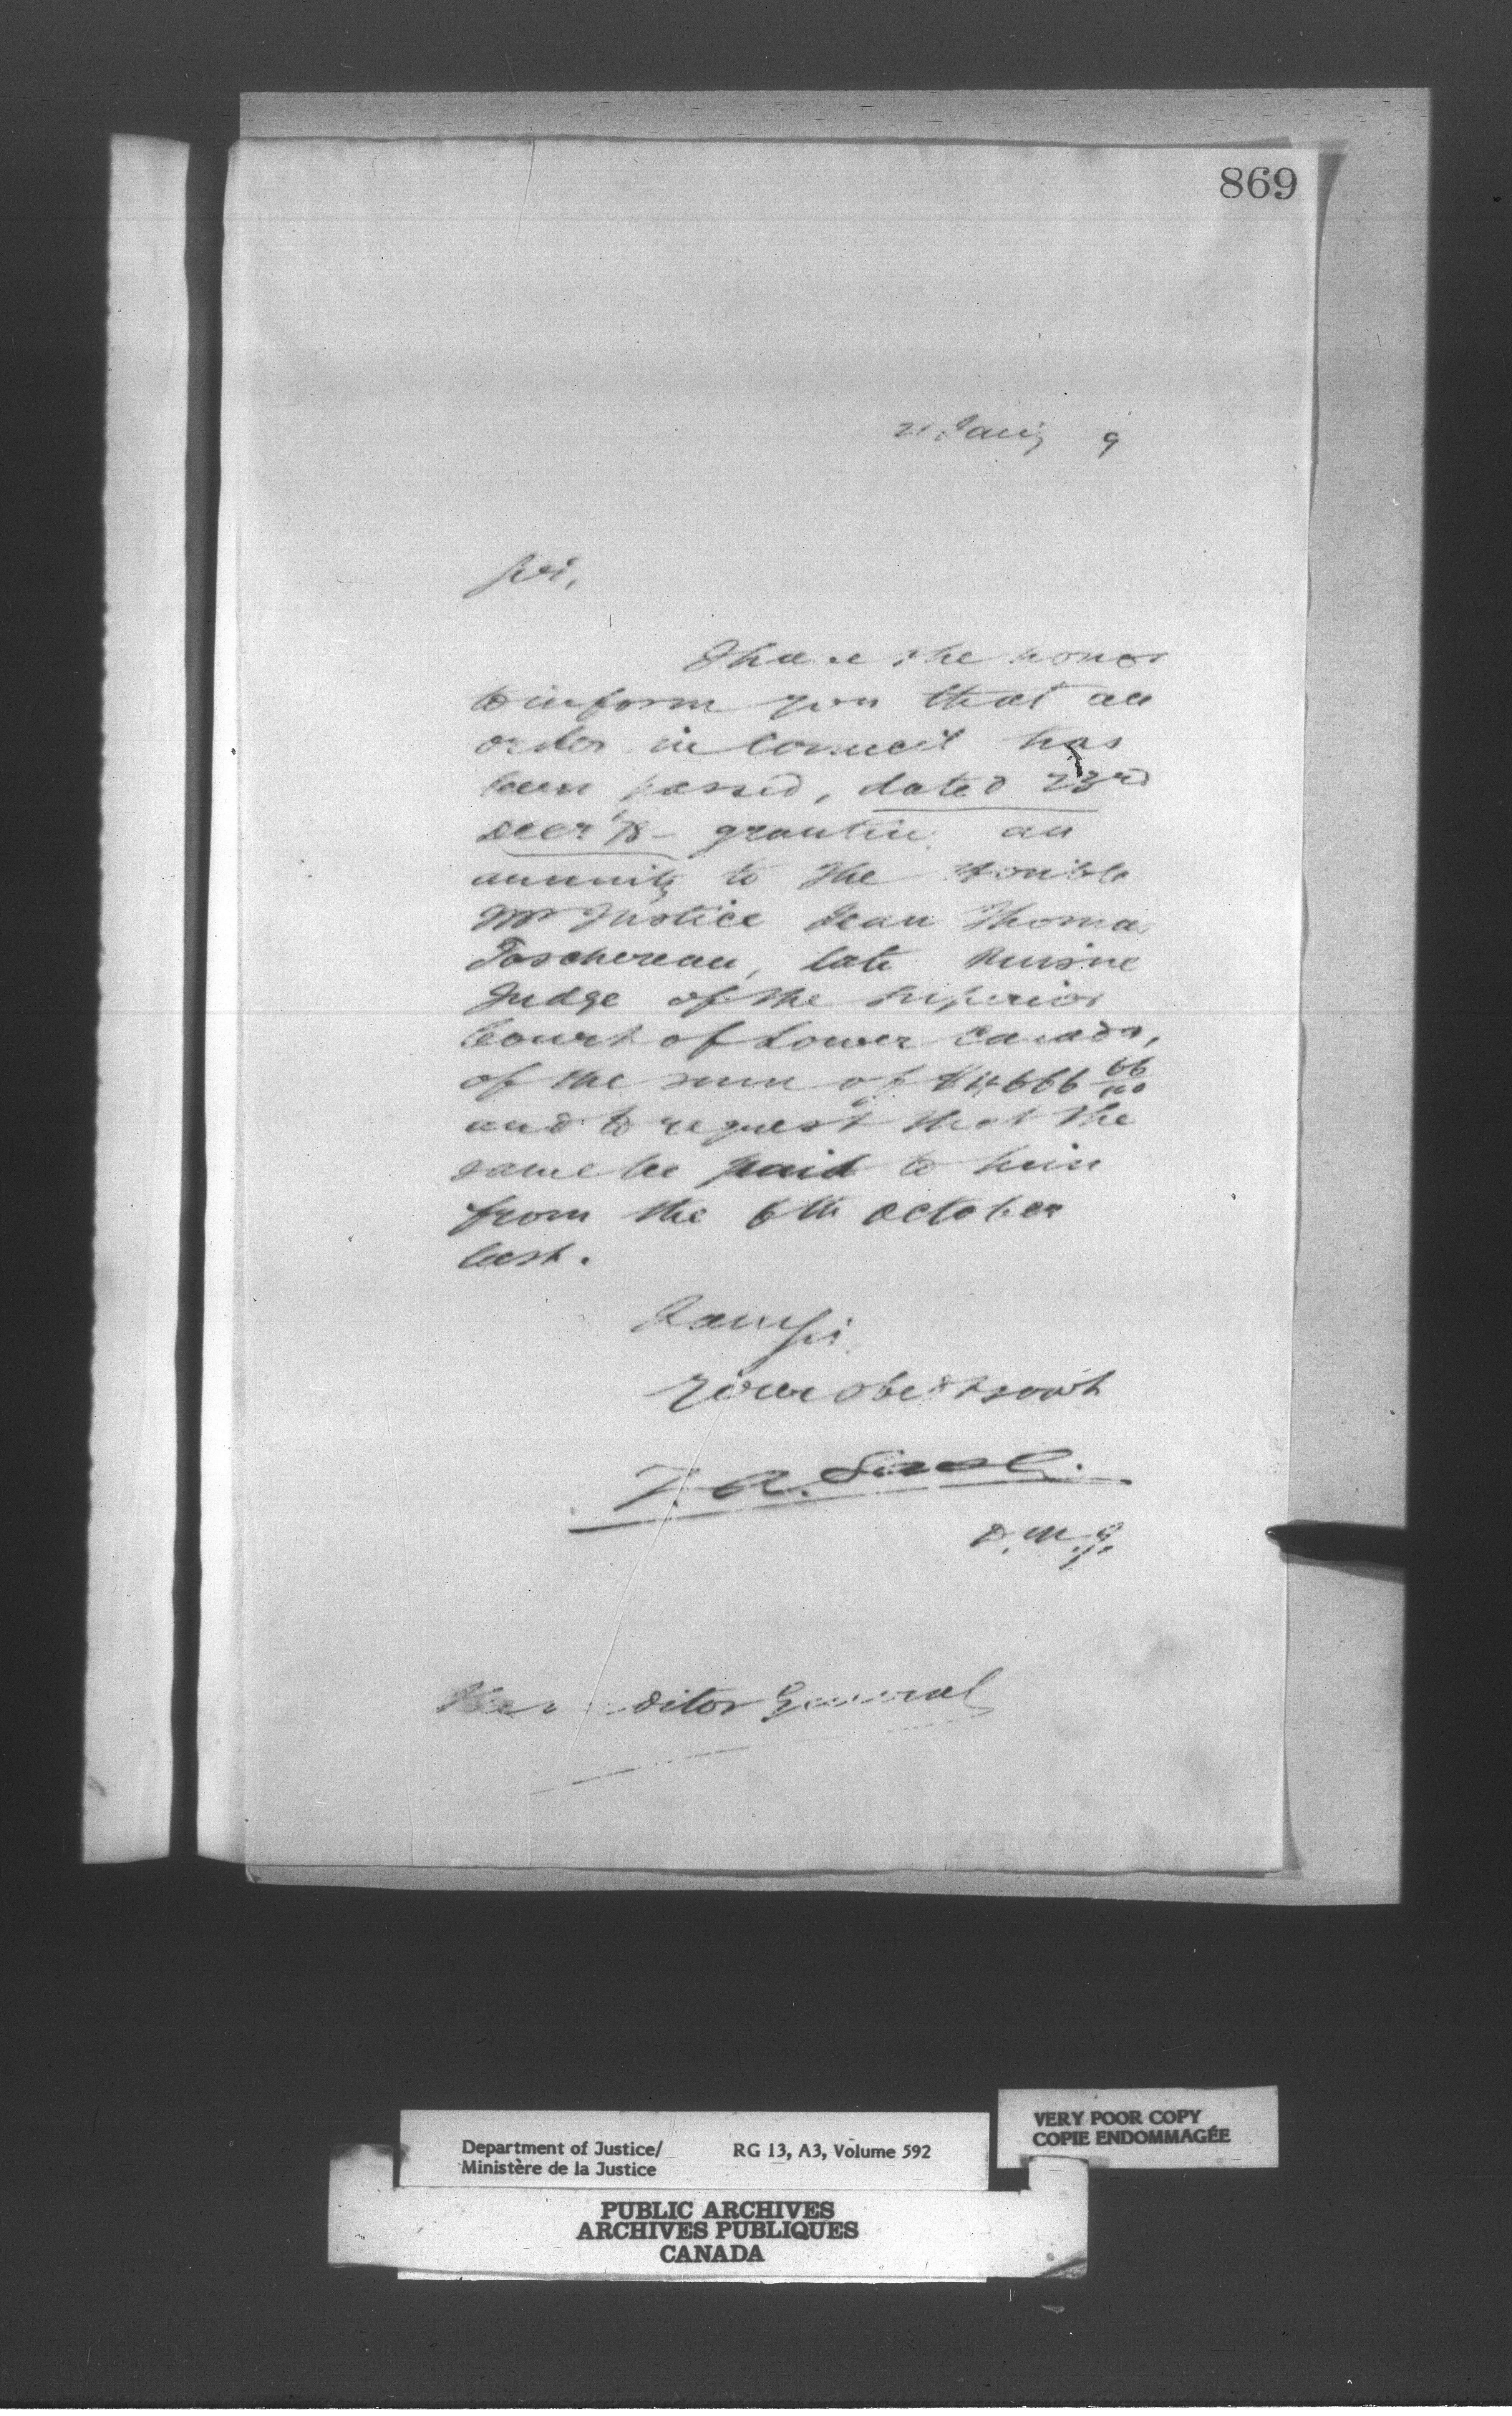 869
21 Jany 9
Sir,
I have the honor
to inform you that an
order in Council has
been passed, dated 23rd
Decr '78 – granting an
annuity to the Honble
Mr Justice Jean Thomas
Taschereau, late Puisne
Judge of the Superior
Court of Lower Canada,
of the sum of $4666 66/100
and to request that the
same be paid to him
from the 6th October
last.
I am Sir
Your obedt servt
Z. A. Lash.
D.M.J.
The Auditor General
Department of Justice/ RG 13, A3, Volume 592
Ministère de la Justice
VERY POOR COPY
COPIE ENDOMMAGÉE
PUBLIC ARCHIVES
ARCHIVES PUBLIQUES
CANADA